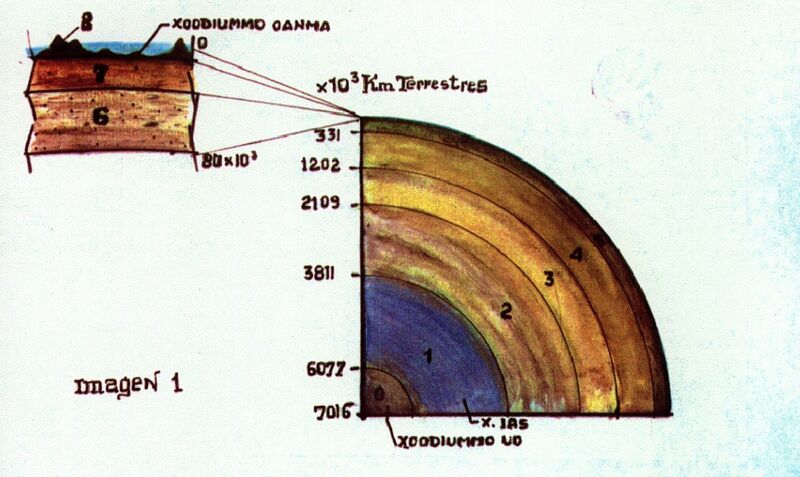 8
XOODIUMMO OANMA
0
7
6
80x10³
x10³ Km Terrestres
331
1202
2109
3811
6077
7016
5
4
3
2
1
0
X. IAS
XOODIUMMO UO
Imagen 1